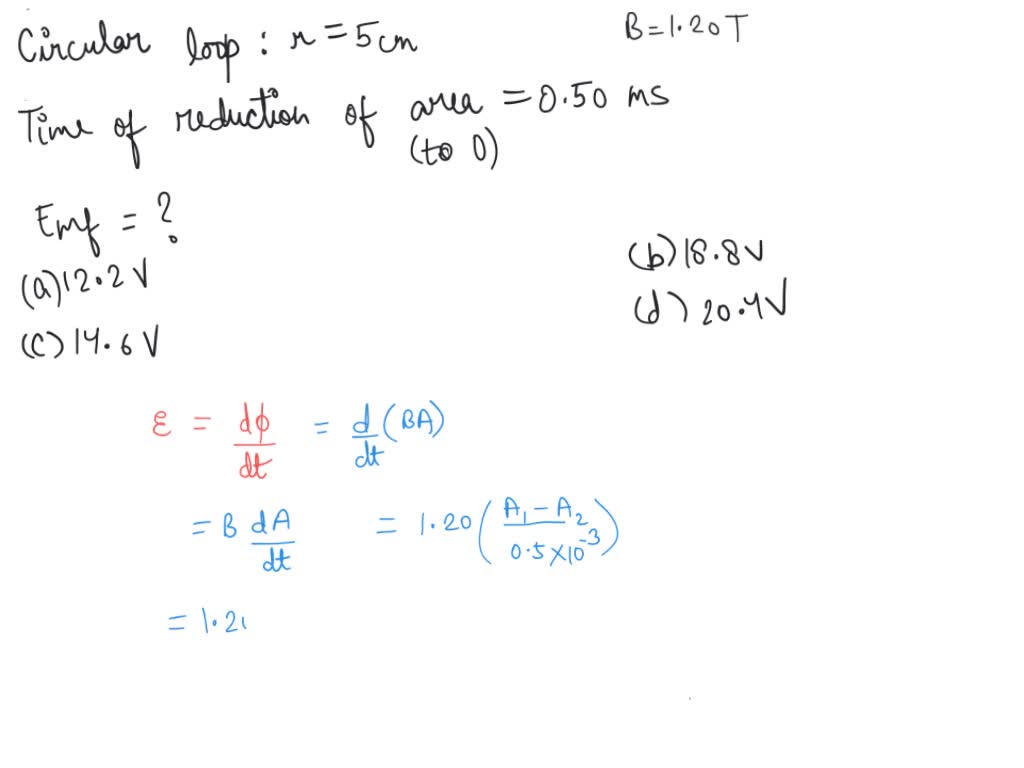 Circular loop : r = 5cm B = 1.20 T
Time of reduction of area = 0.50 ms
(to 0)
Emf = ?
(a) 12.2 V (b) 18.8 V
(c) 14.6 V (d) 20.4 V
ε = dϕ/dt = d/dt (BA)
= B dA/dt = 1.20 (A₁ - A₂ / 0.5 × 10⁻³)
= 1.20